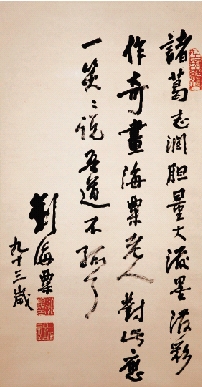 諸葛志润胆量大泼墨泼彩
作奇畫海粟老人對此應
一笑笑说吾道不孤了
劉海粟
九十三歲